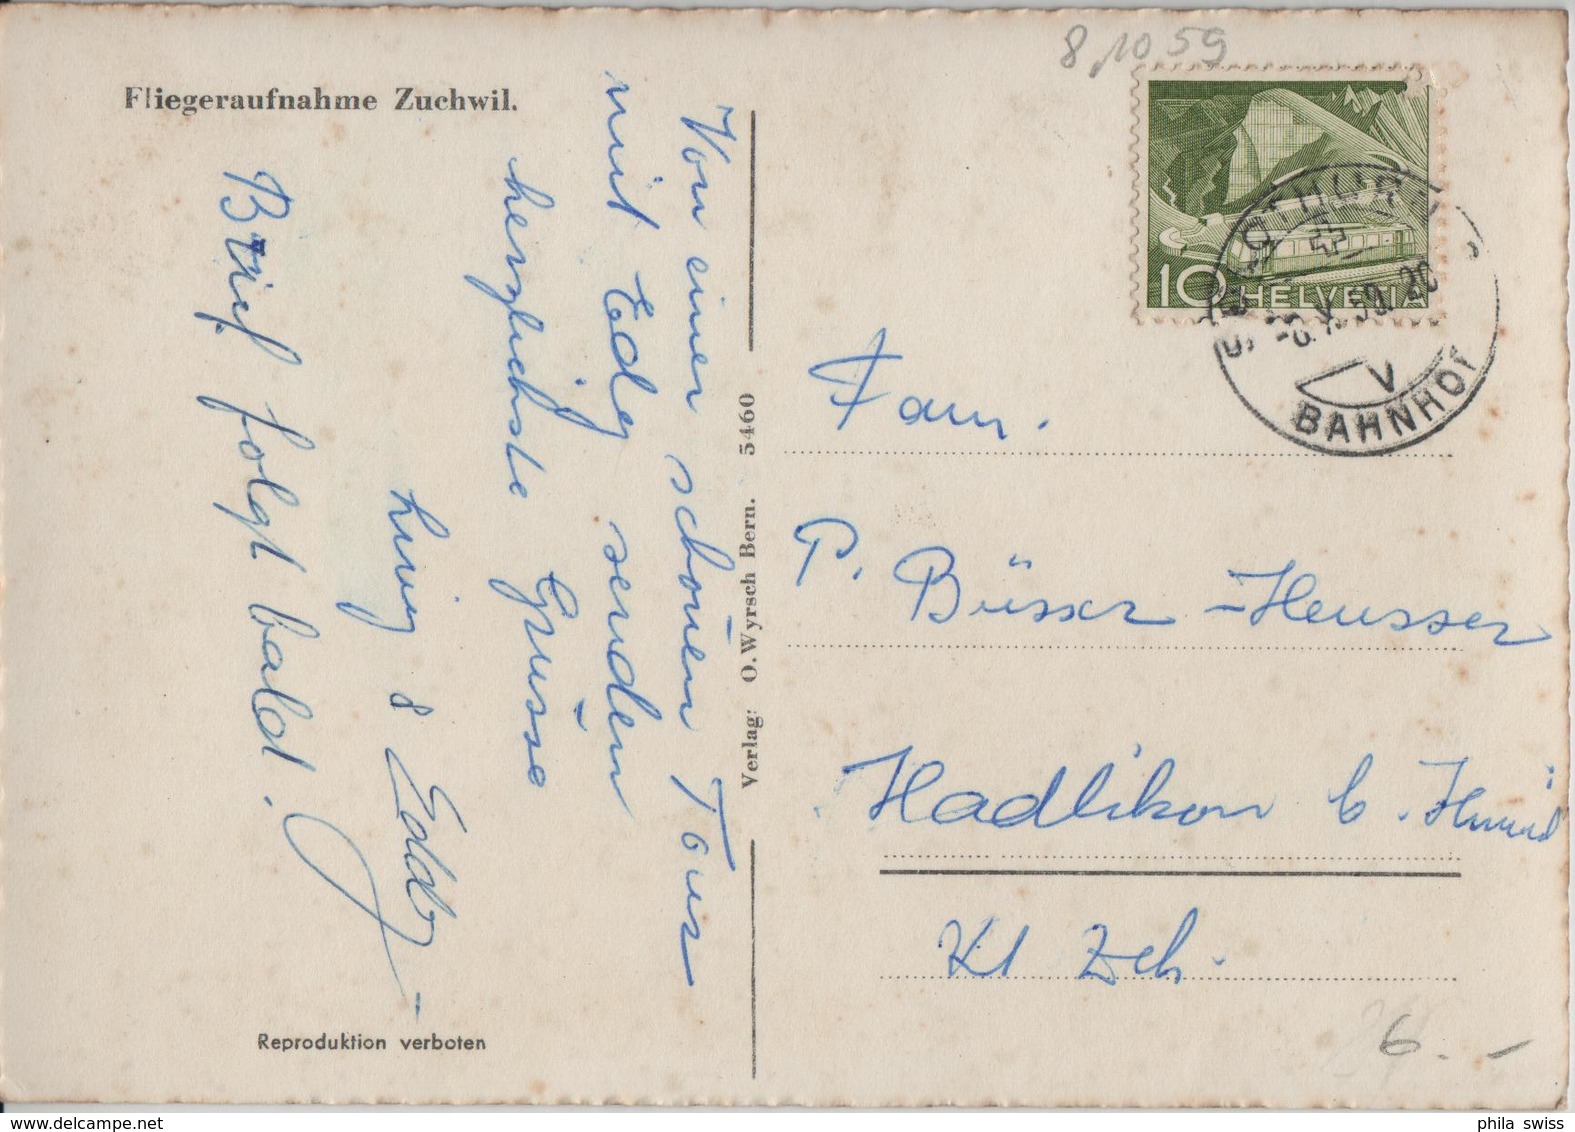 8.10 59
Fliegeraufnahme Zuchwil.
Von einer schönen Tour
mit Eddy senden
herzlichste Grüsse
& Eddy
Brief folgt bald.
Reproduktion verboten
Verlag: O. Wyrsch Bern. 5460
10 HELVETIA
BAHNHOF
Fam.
P. Büsser-Heusser
Hadlikon b. Hinwil
Kt Zch.
6.-
phila swiss